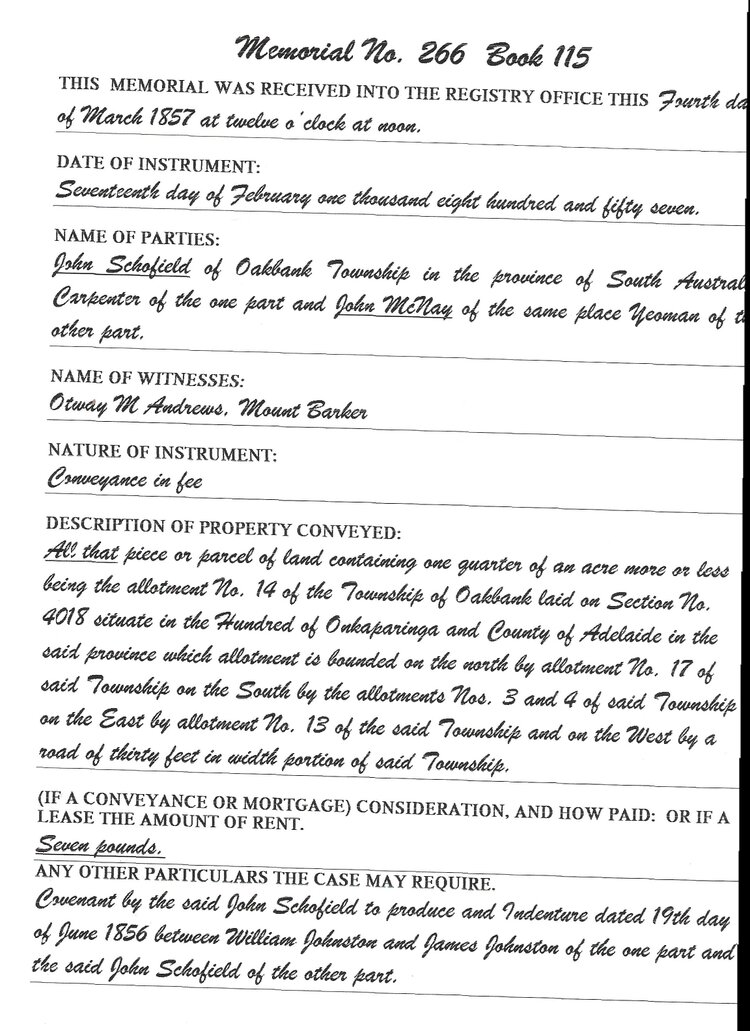 Memorial No. 266 Book 115
THIS MEMORIAL WAS RECEIVED INTO THE REGISTRY OFFICE THIS Fourth da
of March 1857 at twelve o'clock at noon.
DATE OF INSTRUMENT:
Seventeenth day of February one thousand eight hundred and fifty seven.
NAME OF PARTIES:
John Schofield of Oakbank Township in the province of South Austral
Carpenter of the one part and John McNay of the same place Yeoman of t
other part.
NAME OF WITNESSES:
Otway M Andrews, Mount Barker
NATURE OF INSTRUMENT:
Conveyance in fee
DESCRIPTION OF PROPERTY CONVEYED:
All that piece or parcel of land containing one quarter of an acre more or less
being the allotment No. 14 of the Township of Oakbank laid on Section No.
4018 situate in the Hundred of Onkaparinga and County of Adelaide in the
said province which allotment is bounded on the north by allotment No. 17 of
said Township on the South by the allotments Nos. 3 and 4 of said Township
on the East by allotment No. 13 of the said Township and on the West by a
road of thirty feet in width portion of said Township.
(IF A CONVEYANCE OR MORTGAGE) CONSIDERATION, AND HOW PAID: OR IF A
LEASE THE AMOUNT OF RENT.
Seven pounds.
ANY OTHER PARTICULARS THE CASE MAY REQUIRE.
Covenant by the said John Schofield to produce and Indenture dated 19th day
of June 1856 between William Johnston and James Johnston of the one part and
the said John Schofield of the other part.